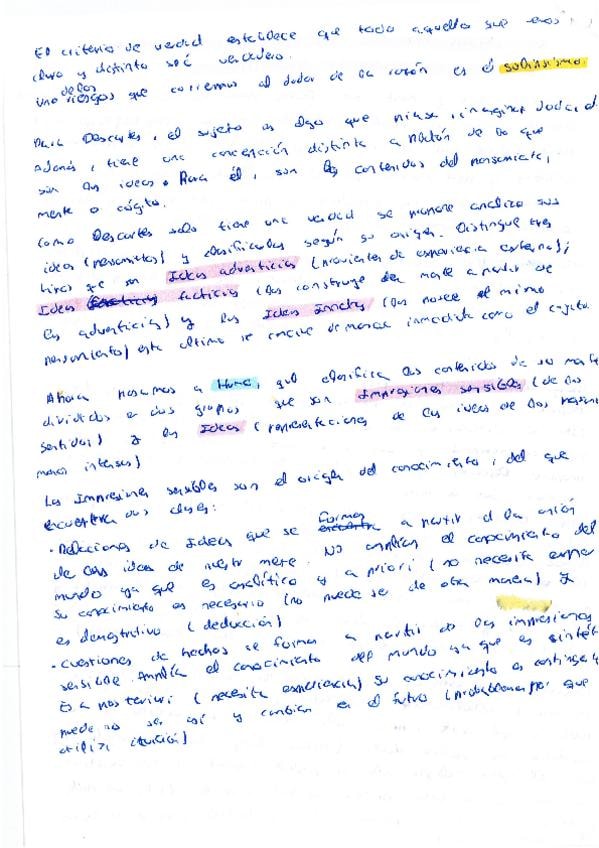 El criterio de verdad establece que todo aquello que sea
claro y distinto será verdadero.
Uno de los riesgos que corremos al dudar de la razón es el solipsismo.
Para Descartes, el sujeto es algo que piensa, imagina, duda
Además, tiene una concepción distinta a Platón de lo que
son las ideas. Para él, son los contenidos del pensamiento,
mente o cógito.
Como Descartes solo tiene una verdad se propone analizar sus
ideas (pensamientos) y clasificarlas según su origen. Distingue tres
tipos que son Ideas adventicias (provenientes de experiencia externa);
Ideas facticias (las construye la mente a partir de
las adventicias) y las Ideas Innatas (las posee el mismo
pensamiento) este último se concibe de manera inmediata como el cógito.
Ahora pasamos a Hume, que clasifica los contenidos de su mente
divididos en dos grupos que son Impresiones sensibles (de los
sentidos) y las Ideas (representaciones de las
menos intensas)
Las Impresiones sensibles son el origen del conocimiento, del que
encuentra dos clases:
· Relaciones de Ideas que se forman a partir d la unión
de las ideas de nuestra mente. No amplían el conocimiento del
mundo ya que es analítico y a priori (no necesita exper
su conocimiento es necesario (no puede ser de otra manera) y
es demostrativo (deducción)
· Cuestiones de hechos se forman a partir de las impresiones
sensible. Amplía el conocimiento del mundo ya que es sintét
a posteriori (necesita experiencia) su conocimiento es contingente
puede no ser así y cambiar en el futuro (probable porque
utiliza intuición)